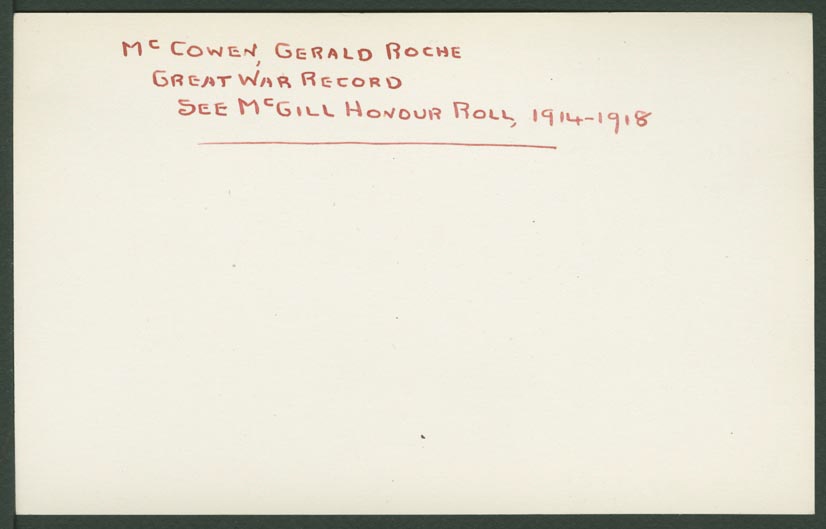 McCOWEN, GERALD ROCHE
GREAT WAR RECORD
SEE McGILL HONOUR ROLL, 1914-1918